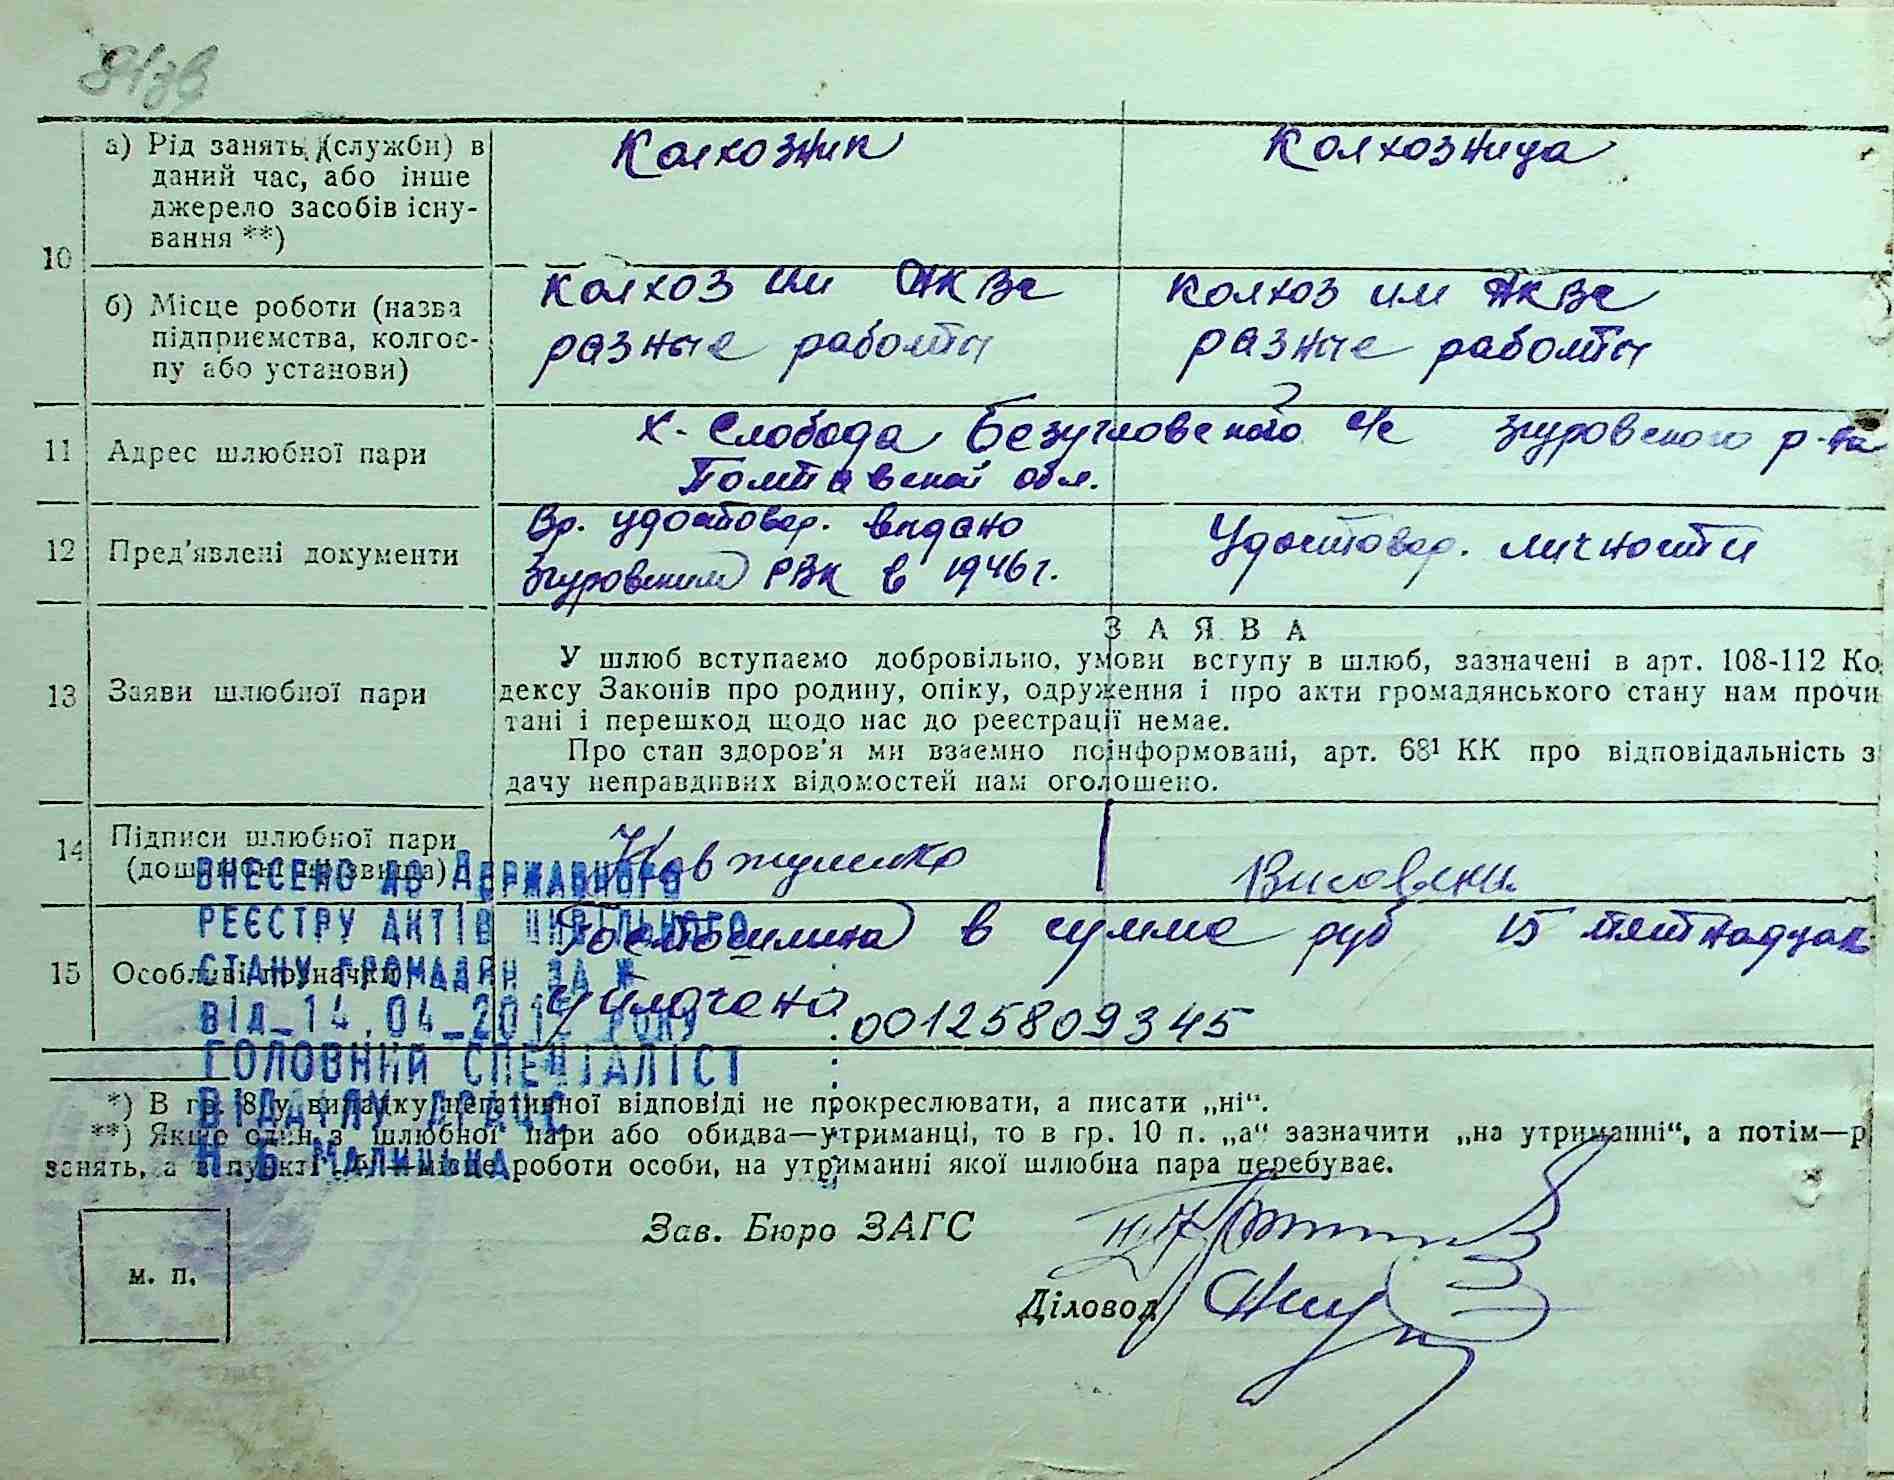 84зв
а) Рід занять (служби) в
даний час, або інше
джерело засобів існу-
вання **)
Колхозник
Колхозница
10
б) Місце роботи (назва
підприємства, колгос-
пу або установи)
колхоз им
разные работы
колхоз им
разные работы
11 Адрес шлюбної пари
х. Слобода Безугловского с/с згуровского р-на
Полтавской обл.
12 Пред'явлені документи
Вр. удостовер. видано
Згуровским РВК в 1946 г.
Удостовер. личности
13 Заяви шлюбної пари
ЗАЯВА
У шлюб вступаємо добровільно, умови вступу в шлюб, зазначені в арт. 108-112 Ко
дексу Законів про родину, опіку, одруження і про акти громадянського стану нам прочи
тані і перешкод щодо нас до реєстрації немає.
Про стан здоров'я ми взаємно поінформовані, арт. 68¹ КК про відповідальність з
дачу неправдивих відомостей нам оголошено.
14 Підписи шлюбної пари
(дошлюбні прізвища)
Ковжуненко
15 Особливі позначки
Госпошлина в сумме руб 15 пятнадцать
уплачено
00125809345
ВНЕСЕНО ДО ДЕРЖАВНОГО
РЕЄСТРУ АКТІВ ЦИВІЛЬНОГО
СТАНУ ГРОМАДЯН ЗА №
ВІД 14.04 2012 РОКУ
ГОЛОВНИЙ СПЕЦІАЛІСТ
ВІДДІЛУ ДРАЦС
Н Б МАЛИЦЬКА
*) В гр. 8 у випадку негативної відповіді не прокреслювати, а писати „ні“.
**) Якщо один з шлюбної пари або обидва—утриманці, то в гр. 10 п. „а“ зазначити „на утриманні“, а потім—р
занять, а в пункті „б“—місце роботи особи, на утриманні якої шлюбна пара перебуває.
Зав. Бюро ЗАГС
м. п.
Діловод